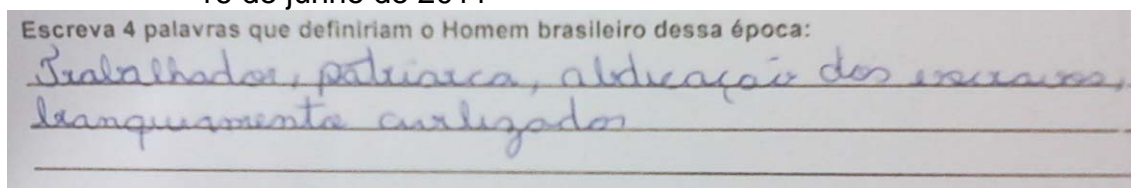 Escreva 4 palavras que definiriam o Homem brasileiro dessa época:
Trabalhador, patriarca, abdicação dos escravos,
branqueamento civilizador